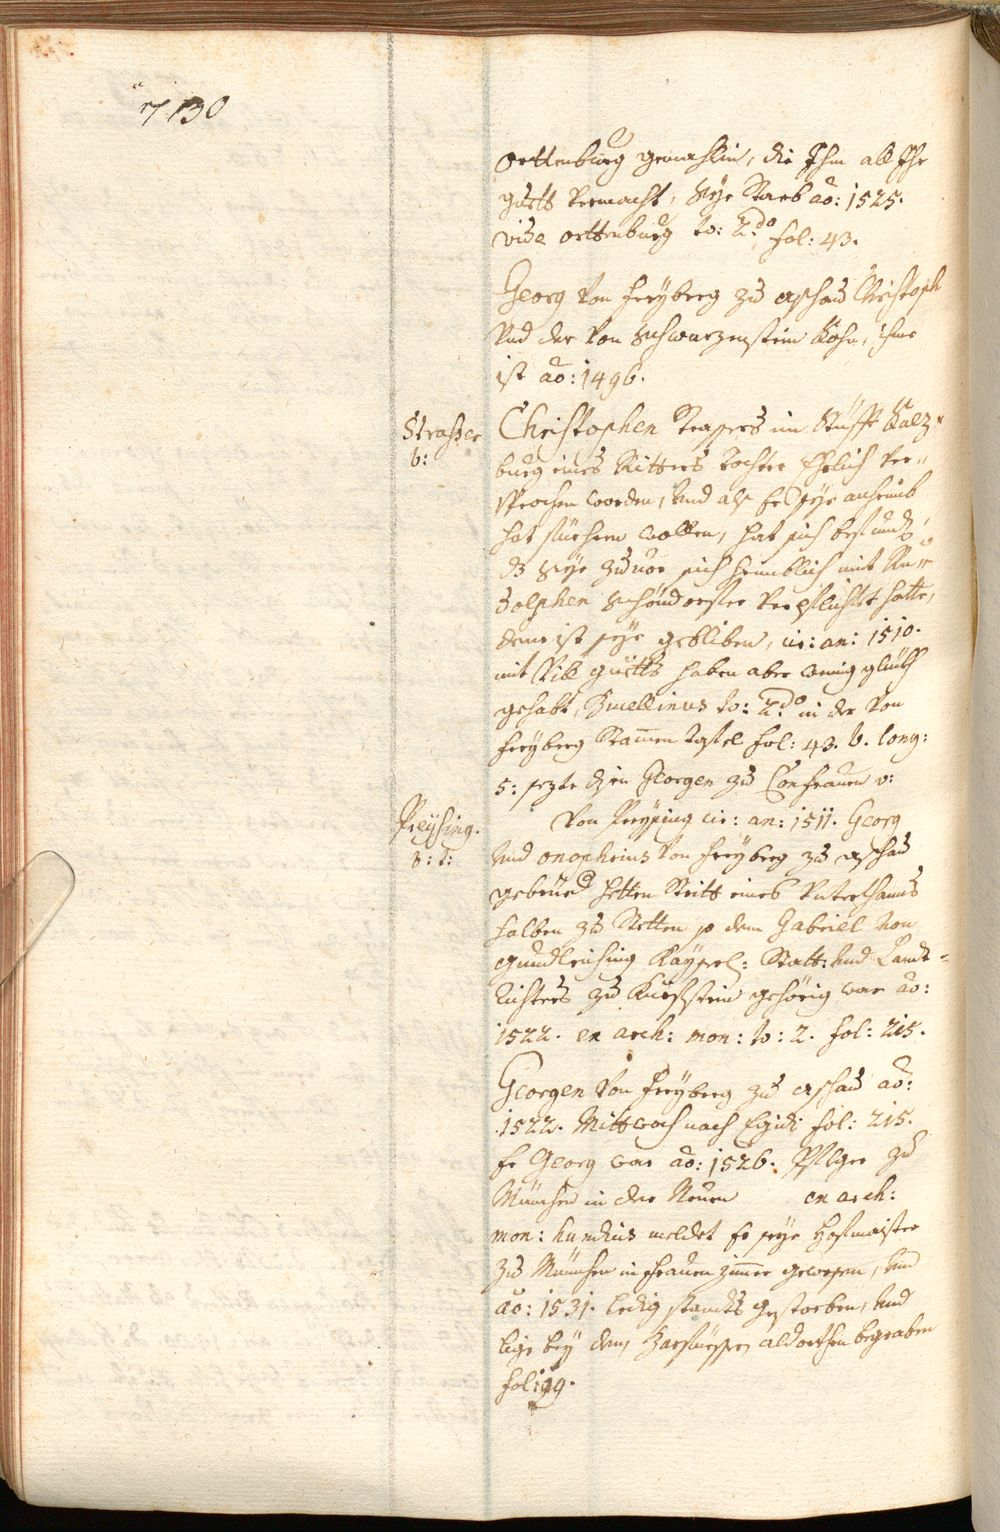 7130
orttenburg gemahlin, die Ihm all Ihr
guetts vermacht, Sye starb ao: 1525.
vide orttenburg to: 2do fol: 43.
Georg von Freyberg zu aschau Christoph
und der von Schwarzenstein Sohn, ihme
ist ao: 1496.
Straßer
v:
Christophen Strassers im Stüfft Salz=
burg eines Ritters tochter Ehelich ver=
sprochen worden, und als Er sye anheimb
hat füehren wollen, hat sich befundt,
dz sye zuuor sich heimblich mit Ru=
dolphen Schöndorffer verpflichtet hatte,
deme ist sye gebliben, cir: an: 1510.
mit vill guetts haben aber wenig glückh
gehabt, to: 2do in der von
freyberg Stammen tafel fol: 43. b. long:
5: sezte disen Georgen zu Confrauen v:
Preysing.
v: t:
von Preysing cir: an: 1511. Georg
und onophrius von freyberg zu aschau
gebrüed hetten Stritt eines Unterthanns
halben zu Stetten so dem Gabriel von
gundlrhsing Kayserl: Statt: und Landt=
Richters zu Kueffstein gehörig war ao:
1522. ex arch: mon: to: 2. fol: 215.
Georgen von Freyberg zu aschau ao:
1522. Mittwoch nach Egidi fol: 215.
Er Georg war ao: 1526. Pfleger zu
München in der Neuen ex arch:
mon: hundius meldet Er seye Hofmaister
zu München in Frauenzimer gewesen, und
ao: 1531. ledig standts gestorben, und
lige bey den Parfuessern aldorthen begraben
fol: 99.